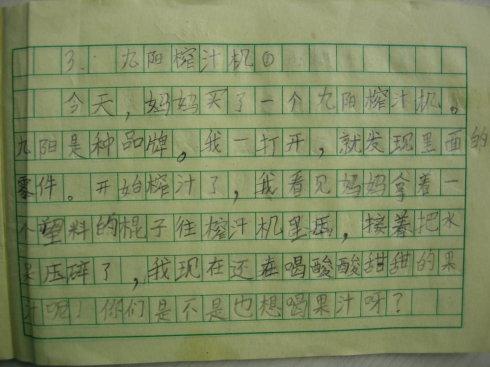 3. 九阳榨汁机①
今天，妈妈买了一个九阳榨汁机。
九阳是种品牌。我一打开，就发现里面的
零件。开始榨汁了，我看见妈妈拿着一
个塑料的棍子往榨汁机里压，接着把水
果压碎了，我现在还在喝酸酸甜甜的果
汁呢！你们是不是也想喝果汁呀？